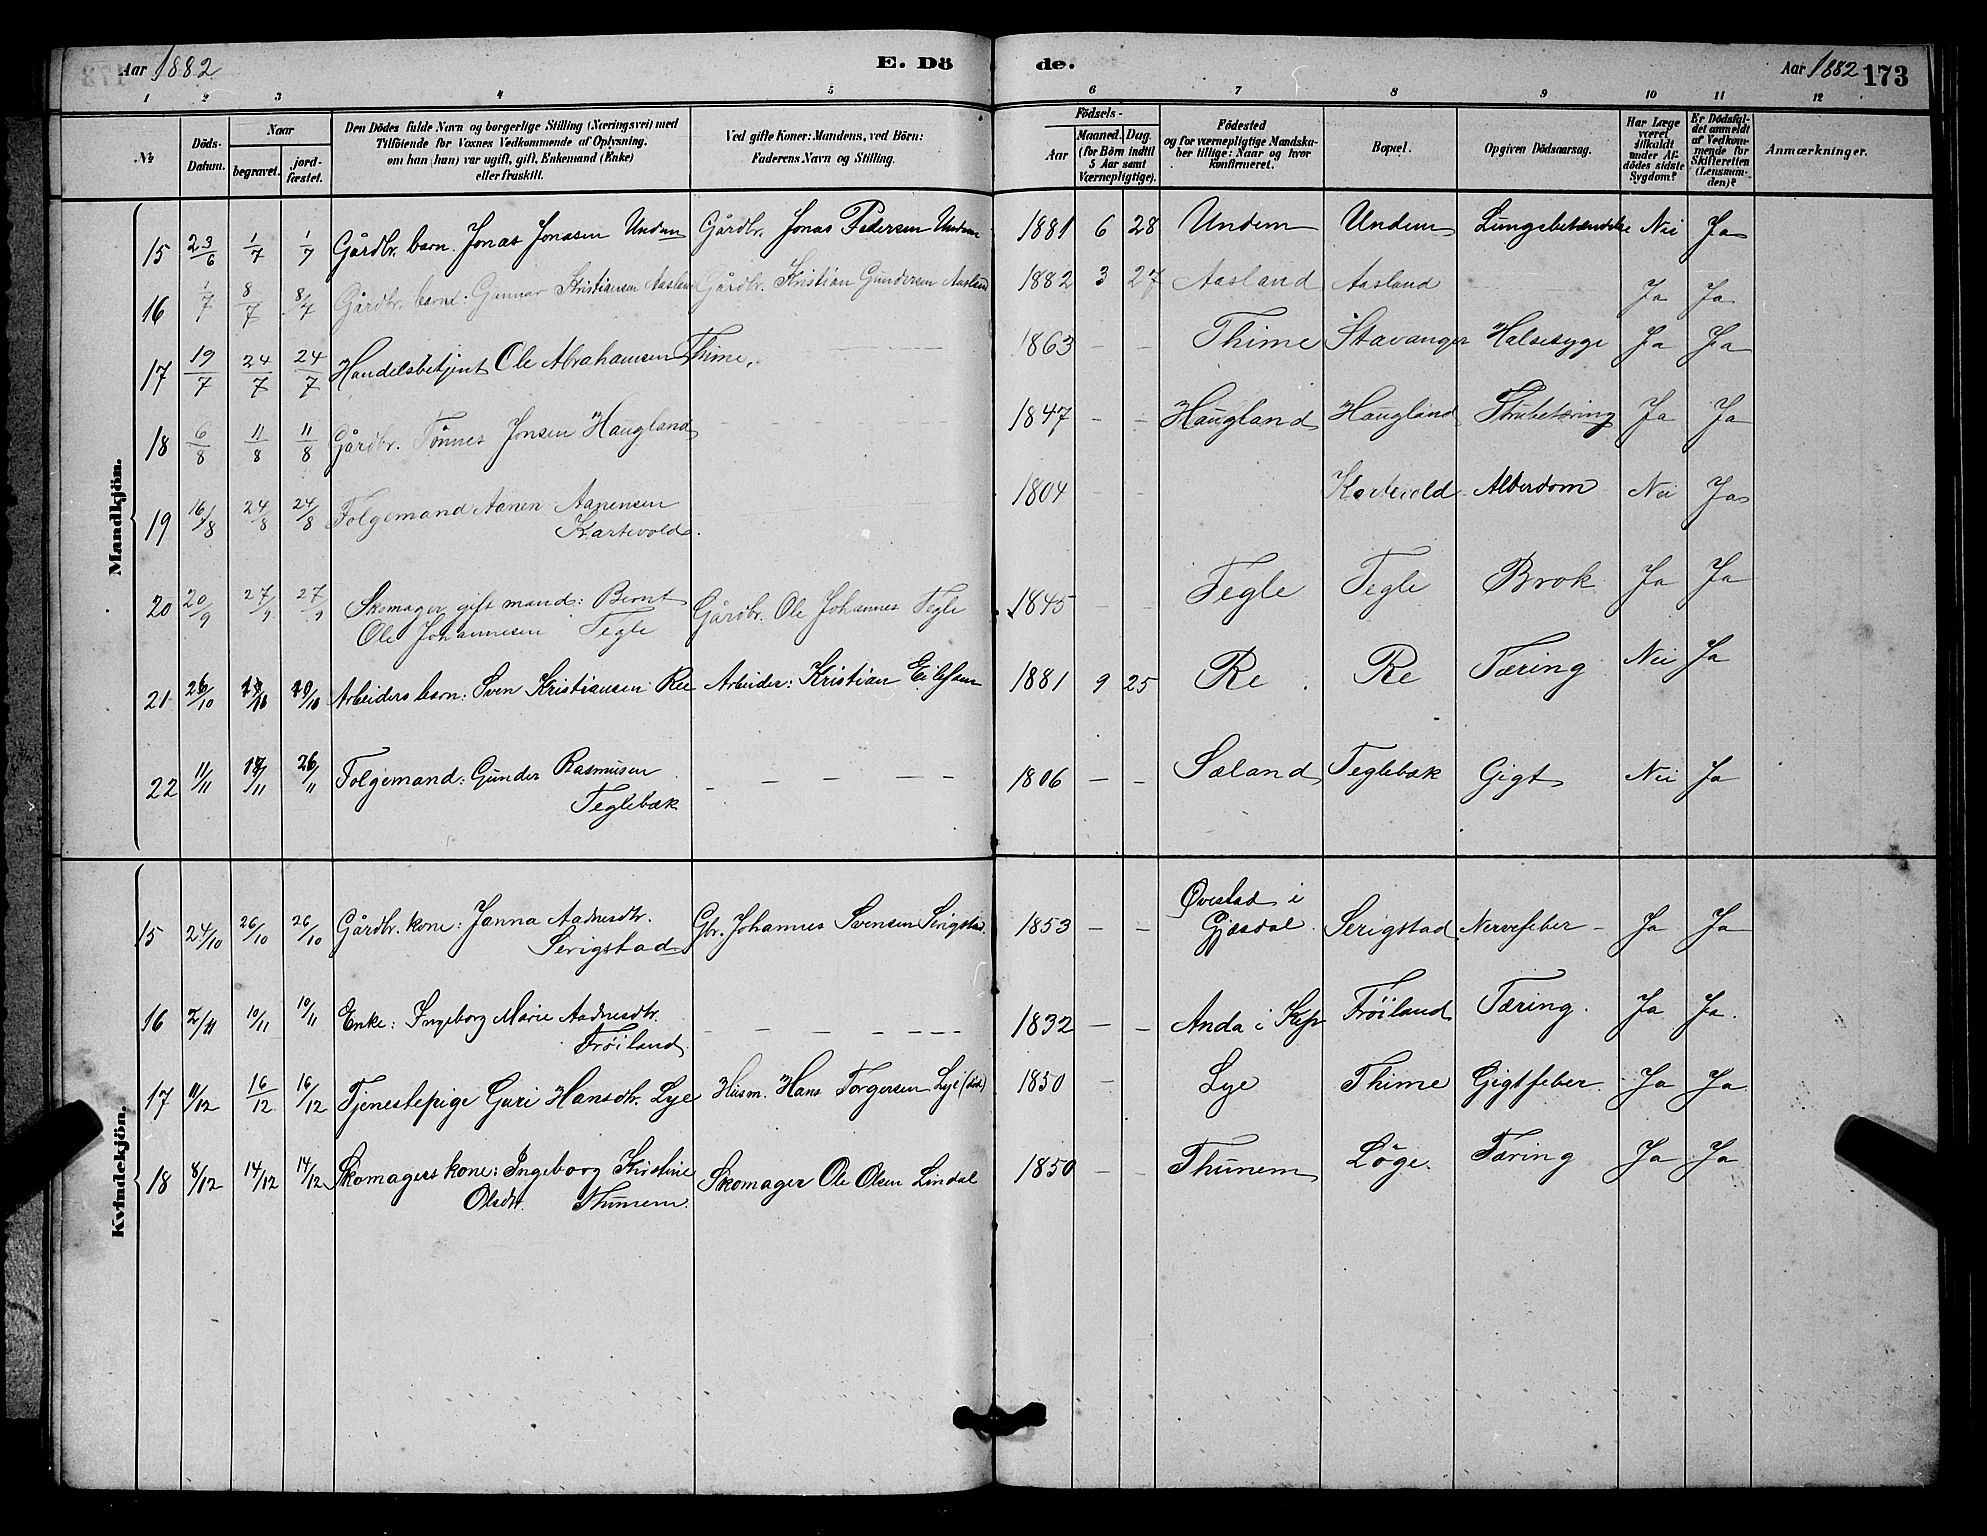 Aar 1882 E. Dö de. Aar 1882 173
1 2 3 4 5 6 7 8 9 10 11 12
№ Döds-Datum. Naar begravet. jord-fæstet. Den Dödes fulde Navn og borgerlige Stilling (Næringsvei) med Tilföiende for Voxnes Vedkommende af Oplysning, om han (hun) var ugift, gift, Enkemand (Enke) eller fraskilt. Ved gifte Koner: Mandens, ved Börn: Faderens Navn og Stilling. Födsels- Aar Maaned. Dag. (for Börn indtil 5 Aar samt Værnepligtige). Födested og for værnepligtige Mandskaber tillige: Naar og hvor konfirmeret. Bopæl. Opgiven Dödsaarsag. Har Læge været tilkaldt under Afdödes sidste Sygdom? Er Dödsfaldet anmeldt af Vedkommende for Skifteretten (Lensmanden)? Anmærkninger.
Mandkjön.
15 23/6 1/7 1/7 Gårdbr. barn. Jonas Jonasen Undem Gårdbr. Jonas Pedersen Undem 1881 6 28 Undem Undem Lungebetændelse Nei Ja
16 1/7 8/7 8/7 Gårdbr. barn: Gunnar Kristiansen Aasland Gårdbr. Kristian Gundersen Aasland 1882 3 27 Aasland Aasland Ja Ja
17 19/7 24/7 24/7 Handelsbetjent Ole Abrahamsen Thime. 1863 - - Thime Stavanger Halsesyge Ja Ja
18 6/8 11/8 11/8 Gårdbr. Tönnes Jonsen Haugland 1847 - - Haugland Haugland Strubetæring Ja Ja
19 16/8 24/8 24/8 Folgemand Aanen Aanensen 1804 - - Kartevold Alderdom Nei Ja
Kartevold.
20 20/9 27/9 27/9 Skomager gift mand: Bernt Gårdbr. Ole Johannes Tegle 1845 - - Tegle Tegle Brok Ja Ja
Ole Johannesen Tegle
21 26/10 /10 /10 Arbeiders barn: Sven Kristiansen Ree Arbeider: Kristian Eilefsen 1881 9 25 Re. Re Tæring Nei Ja
22 11/11 /11 26/11 Folgemand: Gunder Rasmusen - - - - 1806 - - Sæland Teglebæk Gigt Nei Ja
Teglebæk
Kvindekjön.
15 24/10 26/10 26/10 Gårdbr. kone: Janna Aadnesdtr. Gbr. Johannes Svensen Serigstad. 1853 - - Øvestad i Gjæsdal. Serigstad Nervefeber - Ja Ja
Serigstad
16 2/11 10/11 10/11 Enke: Ingeborg Marie Aadnesdtr. - - - - - - - 1832 - - Anda i Kl¿p Fröiland Tæring. Ja Ja.
Fröiland.
17 11/12 16/12 16/12 Tjenestepige Guri Hansdtr. Lye Husm. Hans Torgersen Lye (död) 1850 - Lye Thime Gigtfeber. Ja Ja
18 8/12 14/12 14/12 Skomagers kone: Ingeborg Kirstine Skomager Ole Olsen Lindal 1850 - - Thunem Löge. Tæring Ja Ja
Olsdtr. Thunem.